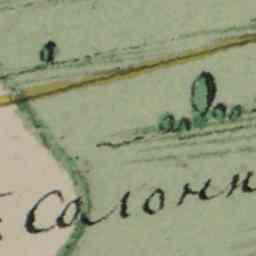 Салонн